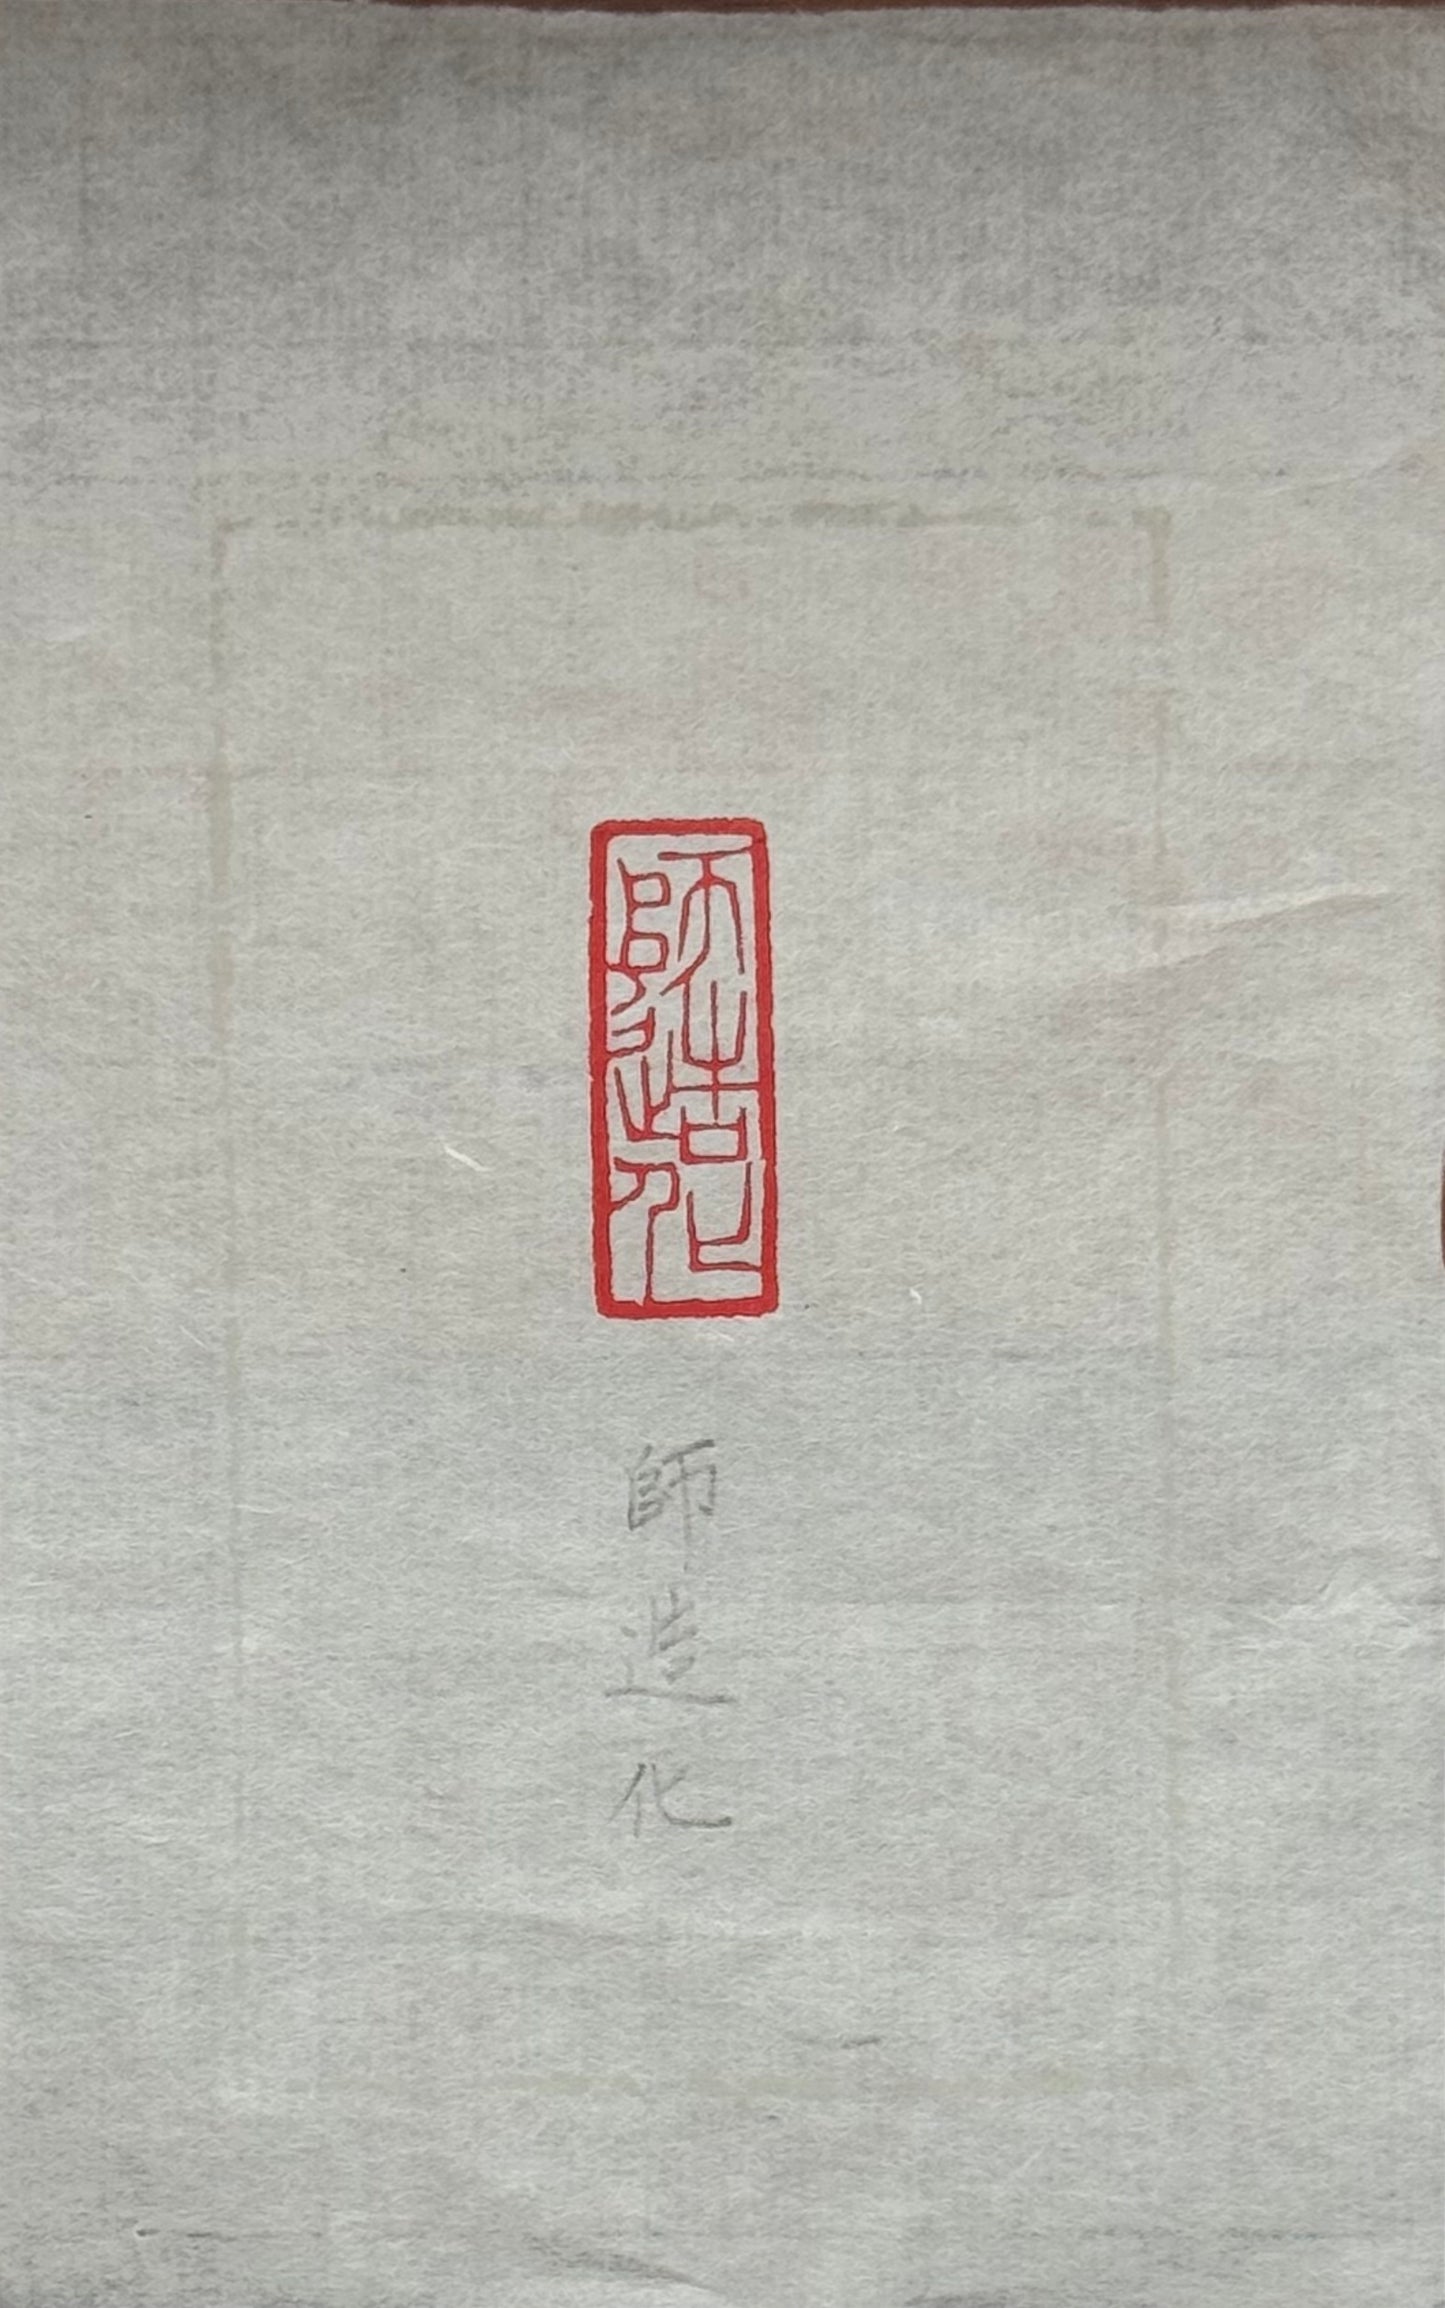 師造化
師造化